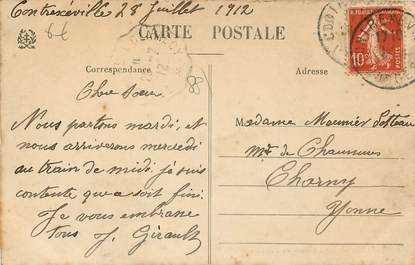 Contrexéville 28 Juillet 1912
CARTE POSTALE
Correspondance
Adresse
10
Chère Soeur
Nous partons mardi, et
nous arriverons mercredi
au train de midi je suis
contente que ça soit fini.
Je vous embrasse
tous J. Girault
Madame Meunier
Md de
Charny
Yonne